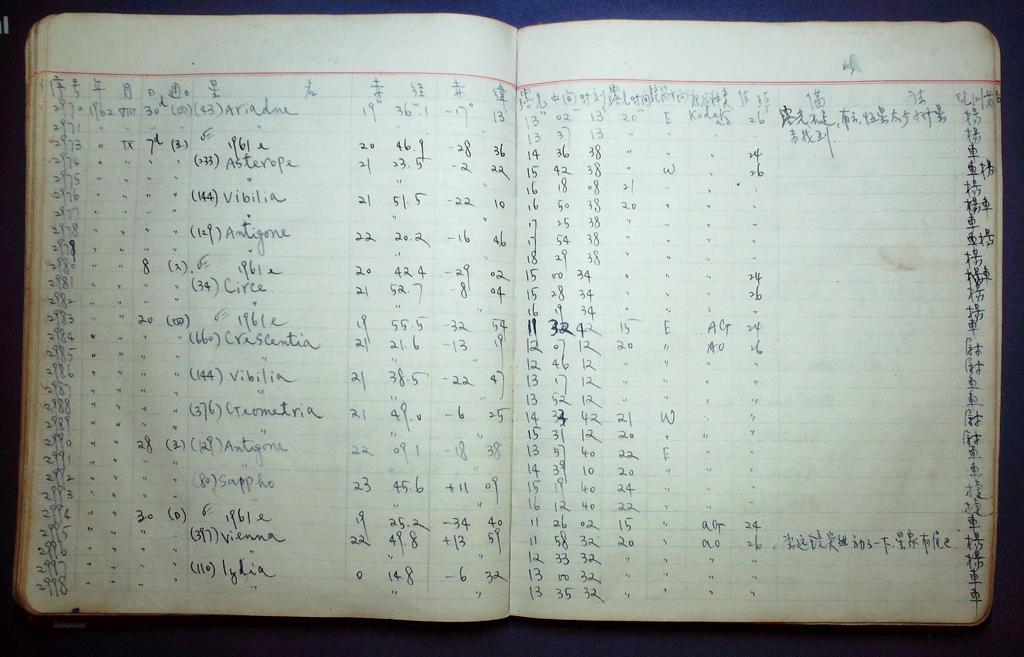 序号 年 月 日 週 星 名 赤 经 赤 纬 露光中间时刻 露光时间 底片种类 焦距 备 注 观测者
2970 1962 VIII 30d (四) (43) Ariadne 19h 36.1 -17° 13' 13h 02m 13s 20m E Kodak 26 露光不足, 杨
2971 " " " " " 13 37 13 " " " " 未找到. 杨
2973 " IX 7d (五) 1961 e 20 46.9 -28 36 14 36 38 " " " 24 車
2974 " " " (233) Asterope 21 23.5 -2 22 15 42 38 " W " 26 車 杨
2975 " " " " " " 16 18 08 21 " " " 杨
2976 " " " (144) Vibilia 21 51.5 -22 10 16 50 38 20 " " " 杨 車
2977 " " " " " " 17 25 38 " " " " 杨
2978 " " " (129) Antigone 22 20.2 -16 46 17 54 38 " " " " 車 杨
2979 " " " " " " 18 29 38 " " " " 杨
2980 " " 8 (六) 1961 e 20 42.4 -29 02 15 00 34 " " " 24 杨 車
2981 " " " (34) Circe 21 52.7 -8 04 15 28 34 " " " 26 杨
2982 " " " " " " 16 19 34 " " " " 杨
2983 " " 20 (四) 1961 e 19 55.5 -32 54 11 32 42 15 E AG 24 車
2984 " " " (660) Crescentia 21 21.6 -13 19 12 07 12 20 " AO 26
2985 " " " " " " 12 46 12 " " " "
2986 " " " (144) Vibilia 21 38.5 -22 47 13 17 12 " " " " 車
2987 " " " " " " 13 52 12 " " " " 車
2988 " " " (376) Geometria 21 49.0 -6 25 14 42 21 W " "
2989 " " " " " " 15 31 12 20 " " "
2990 " " 28 (五) (129) Antigone 22 09.1 -18 38 13 57 40 22 E " " 車
2991 " " " " " " 14 39 10 20 " " " 車
2992 " " " (80) Sappho 23 45.6 +11 09 15 19 40 24 " " "
2993 " " " " " " 16 12 40 22 " " "
2994 " " 30 (日) 1961 e 19 25.2 -34 40 11 26 02 15 " aG 24 車
2995 " " " (397) Vienna 22 49.8 +13 59 11 58 32 20 " aO 26 杨
2996 " " " " " " 12 33 32 " " " " 杨
2997 " " " (110) Lydia 0 14.8 -6 32 13 00 32 " " " " 車
2998 " " " " " " 13 35 32 " " " " 車